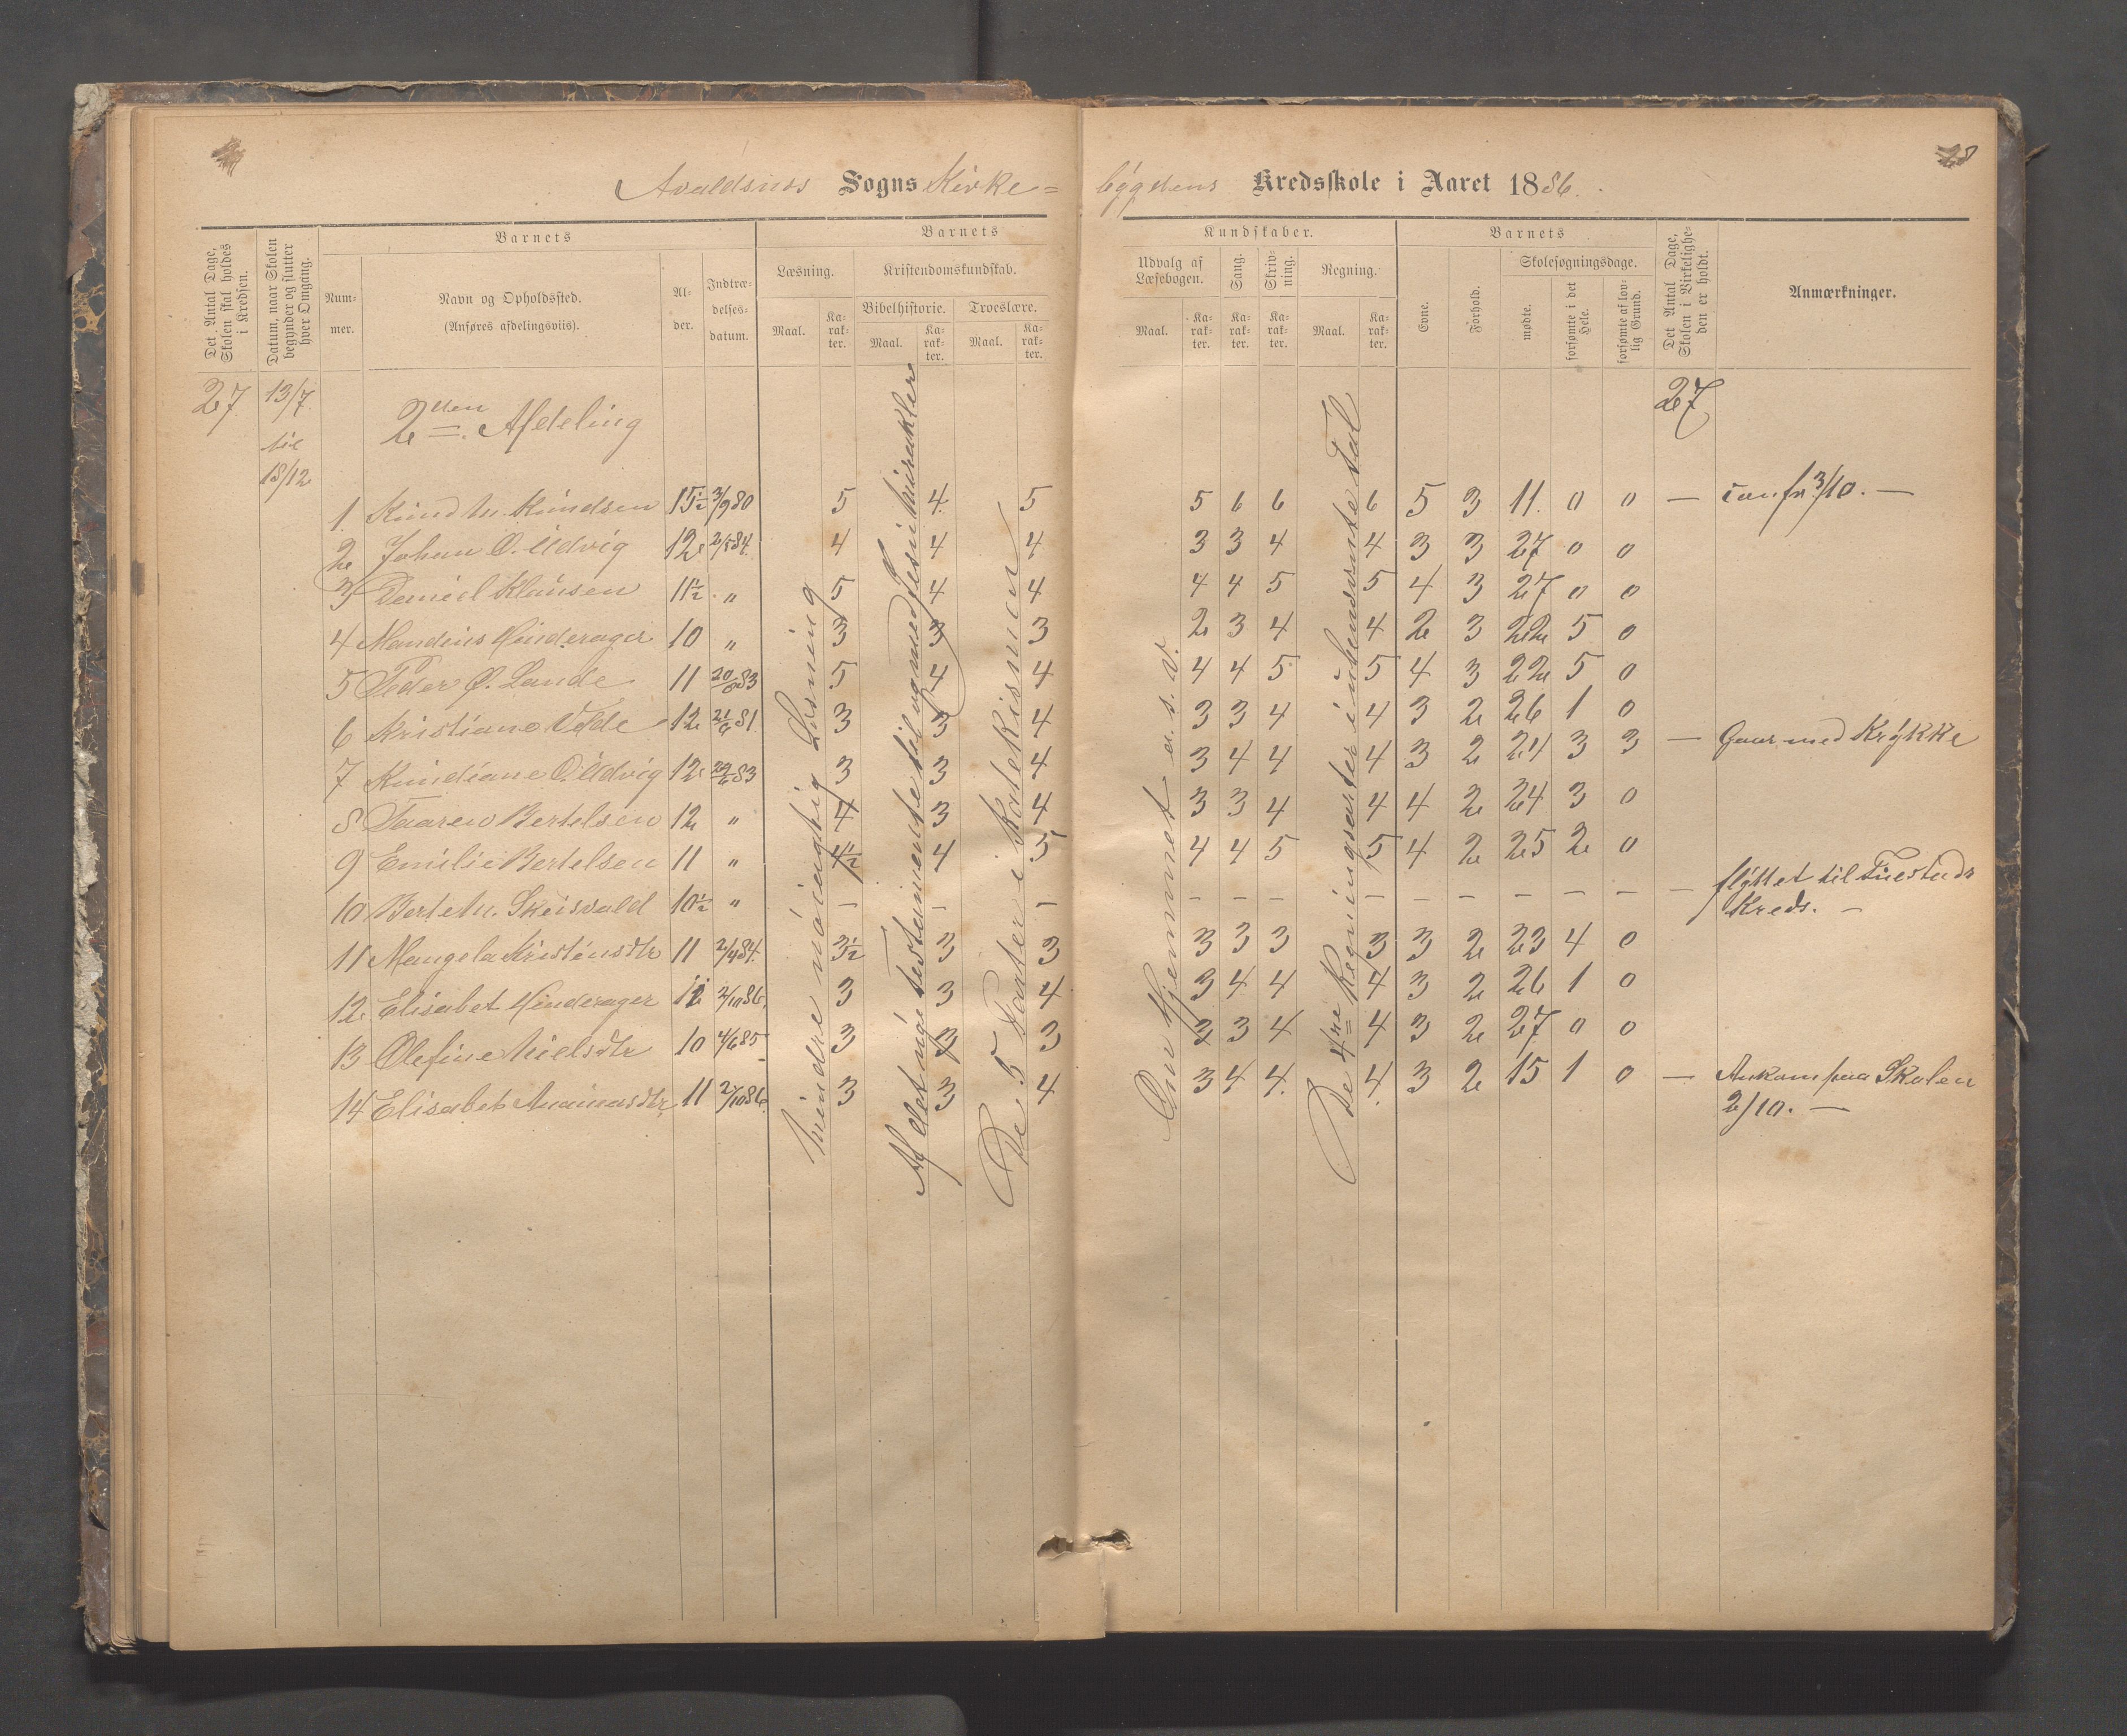 28
Avaldsnes Sogns Kirke=
bygdens Kredsskole i Aaret 1886.
Det Antal Dage, Skolen skal holdes i Kredsen.
Datum, naar Skolen begynder og slutter hver Omgang.
Barnets
Nummer.
Navn og Opholdssted.
(Anføres afdelingsviis).
Alder.
Indtrædelsesdatum.
Barnets
Læsning.
Kristendomskundskab.
Bibelhistorie.
Troeslære.
Maal.
Karakter.
Maal.
Karakter.
Maal.
Karakter.
Kundskaber.
Udvalg af Læsebogen.
Sang.
Skrivning.
Regning.
Maal.
Karakter.
Karakter.
Karakter.
Maal.
Karakter.
Barnets
Evne.
Forhold.
Skolesøgningsdage.
mødte.
forsømte i det Hele.
forsømte af lovlig Grund.
Det Antal Dage, Skolen i Virkeligheden er holdt.
Anmærkninger.
27 13/7 27
til
18/12
2den Afdeling
1 Knud M. Knudsen 15½ 3/9 80 5 4 5 5 6 6 6 5 3 11 0 0 — confr. 3/10. —
2 Johan O. Udvig 12 2/5 84. 4 4 4 3 3 4 4 3 3 27 0 0
3 Daniel Klausen 11½ " 5 4 4 4 4 5 5 4 3 27 0 0
4 Mandius Hinderager 10 " 3 3 3 2 3 4 4 2 3 22 5 0
5 Peder Ø. Lande 11 20/6 83 5 4 4 4 4 5 5 4 3 22 5 0
6 Kristiane Velde 12 21/6 81 3 3 4 3 3 4 4 3 2 26 1 0
7 Knudiane O. Udvig 12 22/6 83 3 3 4 3 4 4 4 3 2 24 3 3 — Gaar med Krykke
8 Taaren Bertelsen 12 " 4 3 4 3 3 4 4 4 2 24 3 0
9 Emilie Bertelsen 11 " 4½ 4 5 4 4 5 5 4 2 25 2 0
10 Berte M. Skeisvold 10½ " — — — — — — — — — — — — — flyttet til
Kreds. —
11 Mangela Kristensdtr 11 2/4 84. 3½ 3 3 3 3 3 3 3 2 23 4 0
12 Elisabet Hinderager 11 2/10 86, 3 3 4 3 4 4 4 3 2 26 1 0
13 Olefine Nielsdtr 10 4/6 85 3 3 3 3 3 4 4 3 2 27 0 0
14 Elisabet Ananiasdtr 11 2/10 86. 3 3 4 3 4 4. 4. 3 2 15 1 0 — Ankom paa Skolen
2/10. —
Mindre nøiagtig Læsning
Af det nye testamente til og med Jesu mirakler
De 5 Parter i Katekismen
Om Hjemmet o. s. v.
De 4re Regningsarter i ubenævnte Tal